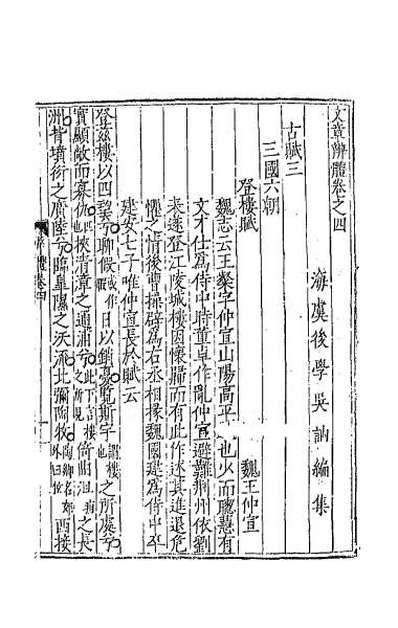 文章辨體卷之四
海虞後學吳訥編集
古賦三
三國六朝
登樓賦
魏王仲宣
魏志云王粲字仲宣山陽高平
也少而聰慧有
文才仕為侍中時董卓作亂仲宣避難荆州依劉
表遂登江陵城樓因懷歸而有此作述其進退危
懼之情後曹操辟為右丞相掾魏國建為侍中卒
建安七子唯仲宣長於賦云
登兹樓以四望兮聊假日以銷憂覽斯宇之所處兮
實顯敞而寡仇挾清漳之通浦兮倚曲沮之長
洲背墳衍之廣陸兮臨臯隰之沃流北彌陶牧西接